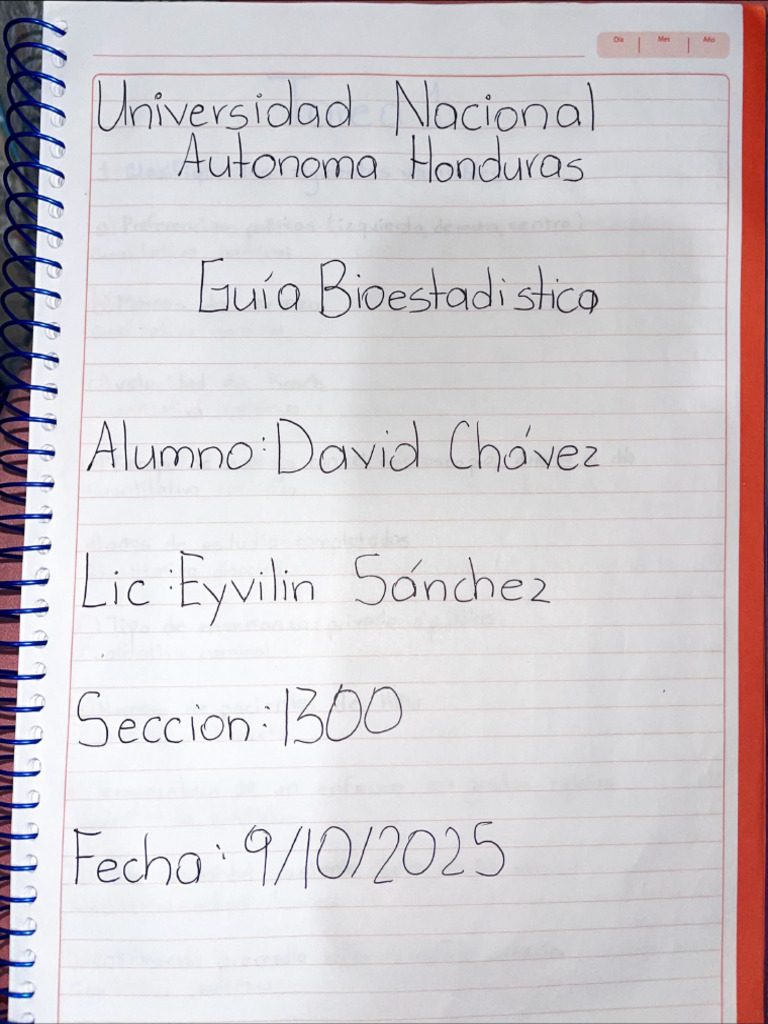 Día Mes Año
Universidad Nacional
Autonoma Honduras
Guía Bioestadistica
Alumno: David Chávez
Lic: Eyvilin Sánchez
Seccion: 1300
Fecha: 9/10/2025